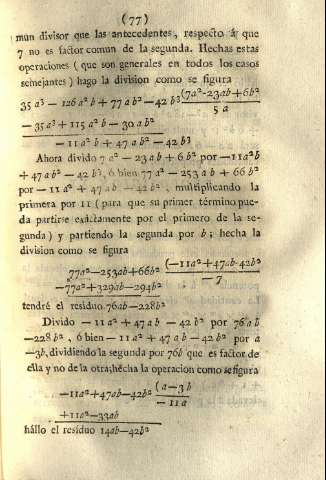 (77)
mun divisor que las antecedentes, respecto á que
7 no es factor comun de la segunda. Hechas estas
operaciones ( que son generales en todos los casos
semejantes ) hago la division como se figura
35 a³ — 126 a² b + 77 a b² — 42 b³ (7a²-23ab+6b²
5 a
— 35 a³ + 115 a² b — 30 a b²
— 11 a² b + 47 a b² — 42 b³
Ahora divido 7 a² — 23 a b + 6 b² por — 11 a² b
+ 47 a b² — 42 b³, ó bien 77 a² — 253 a b + 66 b²
por — 11 a² + 47 a b — 42 b², multiplicando la
primera por 11 ( para que su primer término pue-
da partirse exâctamente por el primero de la se-
gunda ) y partiendo la segunda por b; hecha la
division como se figura
77a²—253ab+66b² (—11a²+47ab-42b²
— 7
—77a²+329ab—294b²
tendré el residuo 76ab—228b²
Divido — 11 a² + 47 a b — 42 b² por 76 a b
—228 b², ó bien — 11 a² + 47 a b — 42 b² por a
—3b, dividiendo la segunda por 76b que es factor de
ella y no de la otra; hecha la operacion como se figura
—11a²+47ab—42b² (a—3b
— 11a
+11a²—33ab
hállo el residuo 14ab—42b²